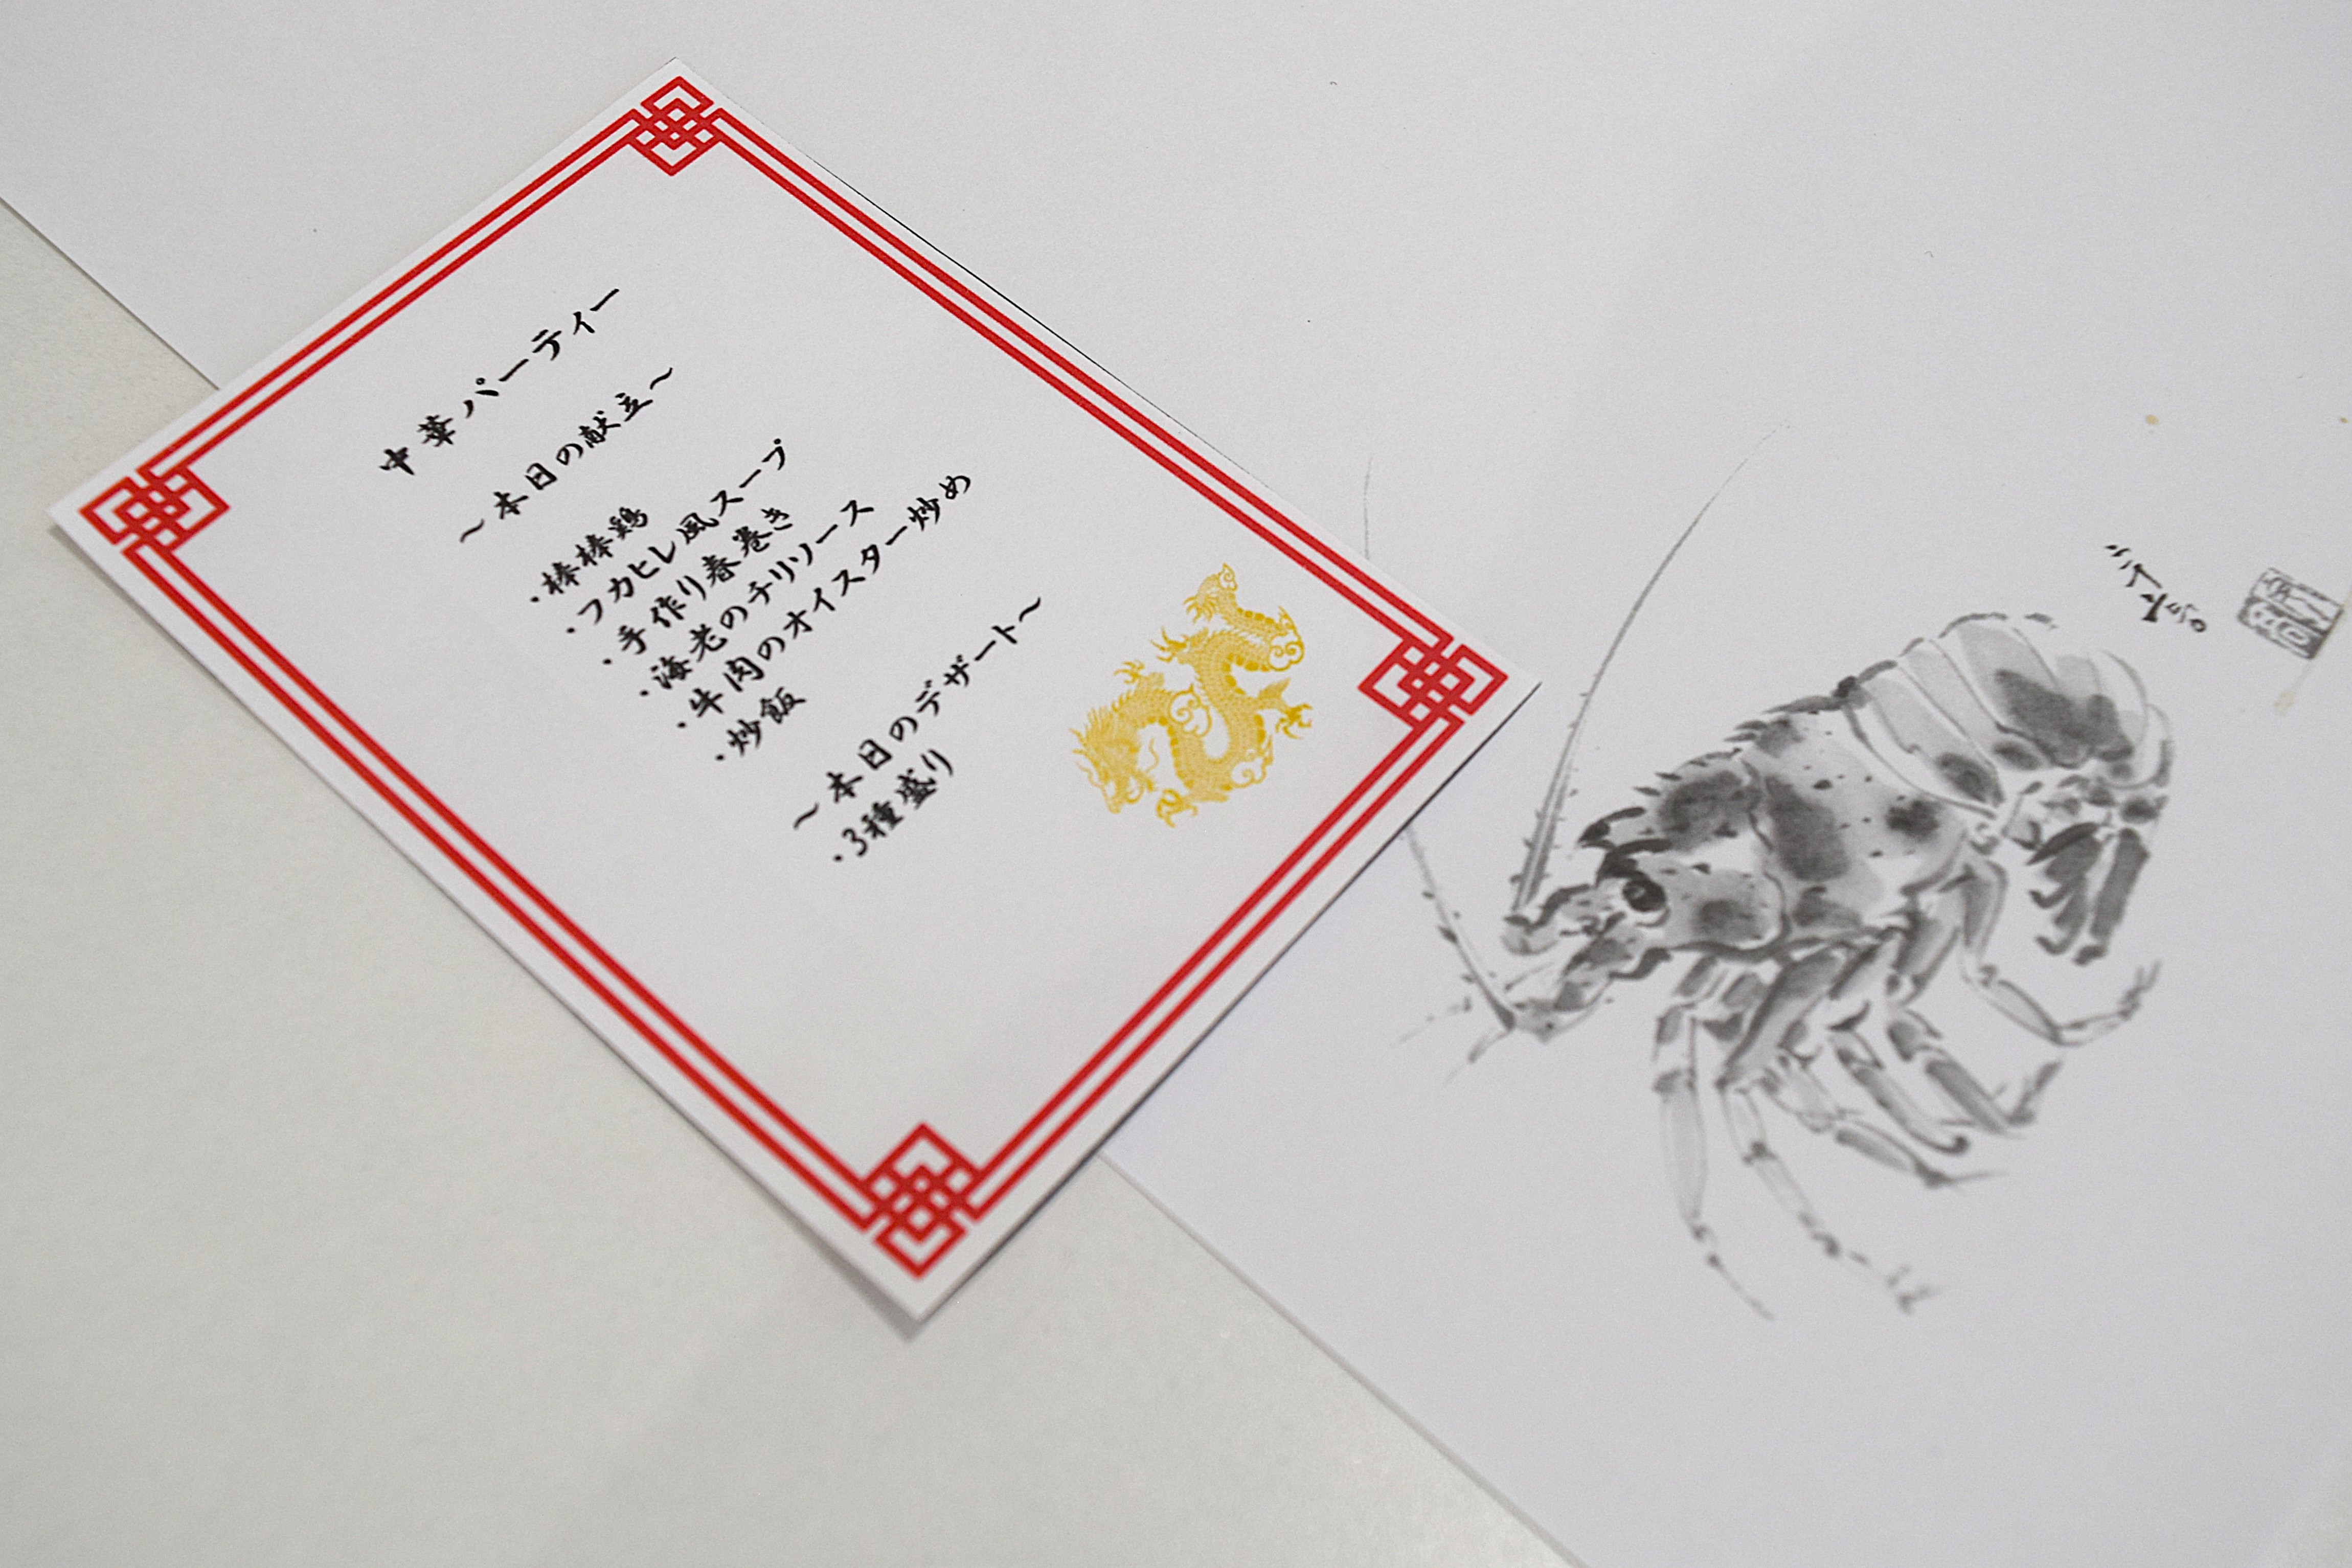 中華パーティー
～本日の献立～
・棒棒鶏
・フカヒレ風スープ
・手作り春巻き
・海老のチリソース
・牛肉のオイスター炒め
・炒飯
～本日のデザート～
・3種盛り